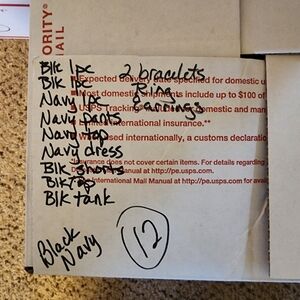 ORITY®
MAIL
Blk 1pc
Blk 1pc
Navy 1pc
Navy pants
Navy top
Navy dress
Blk shorts
Blk top
Blk tank
2 bracelets
Ring
earrings
Black
Navy
12
Expected delivery date specified for domestic u
Most domestic shipments include up to $100 of
USPS Tracking® included for domestic and man
international insurance.**
used internationally, a customs declaratio
Insurance does not cover certain items. For details regarding
Manual at http://pe.usps.com.
International Mail Manual at http://pe.usps.com for avail